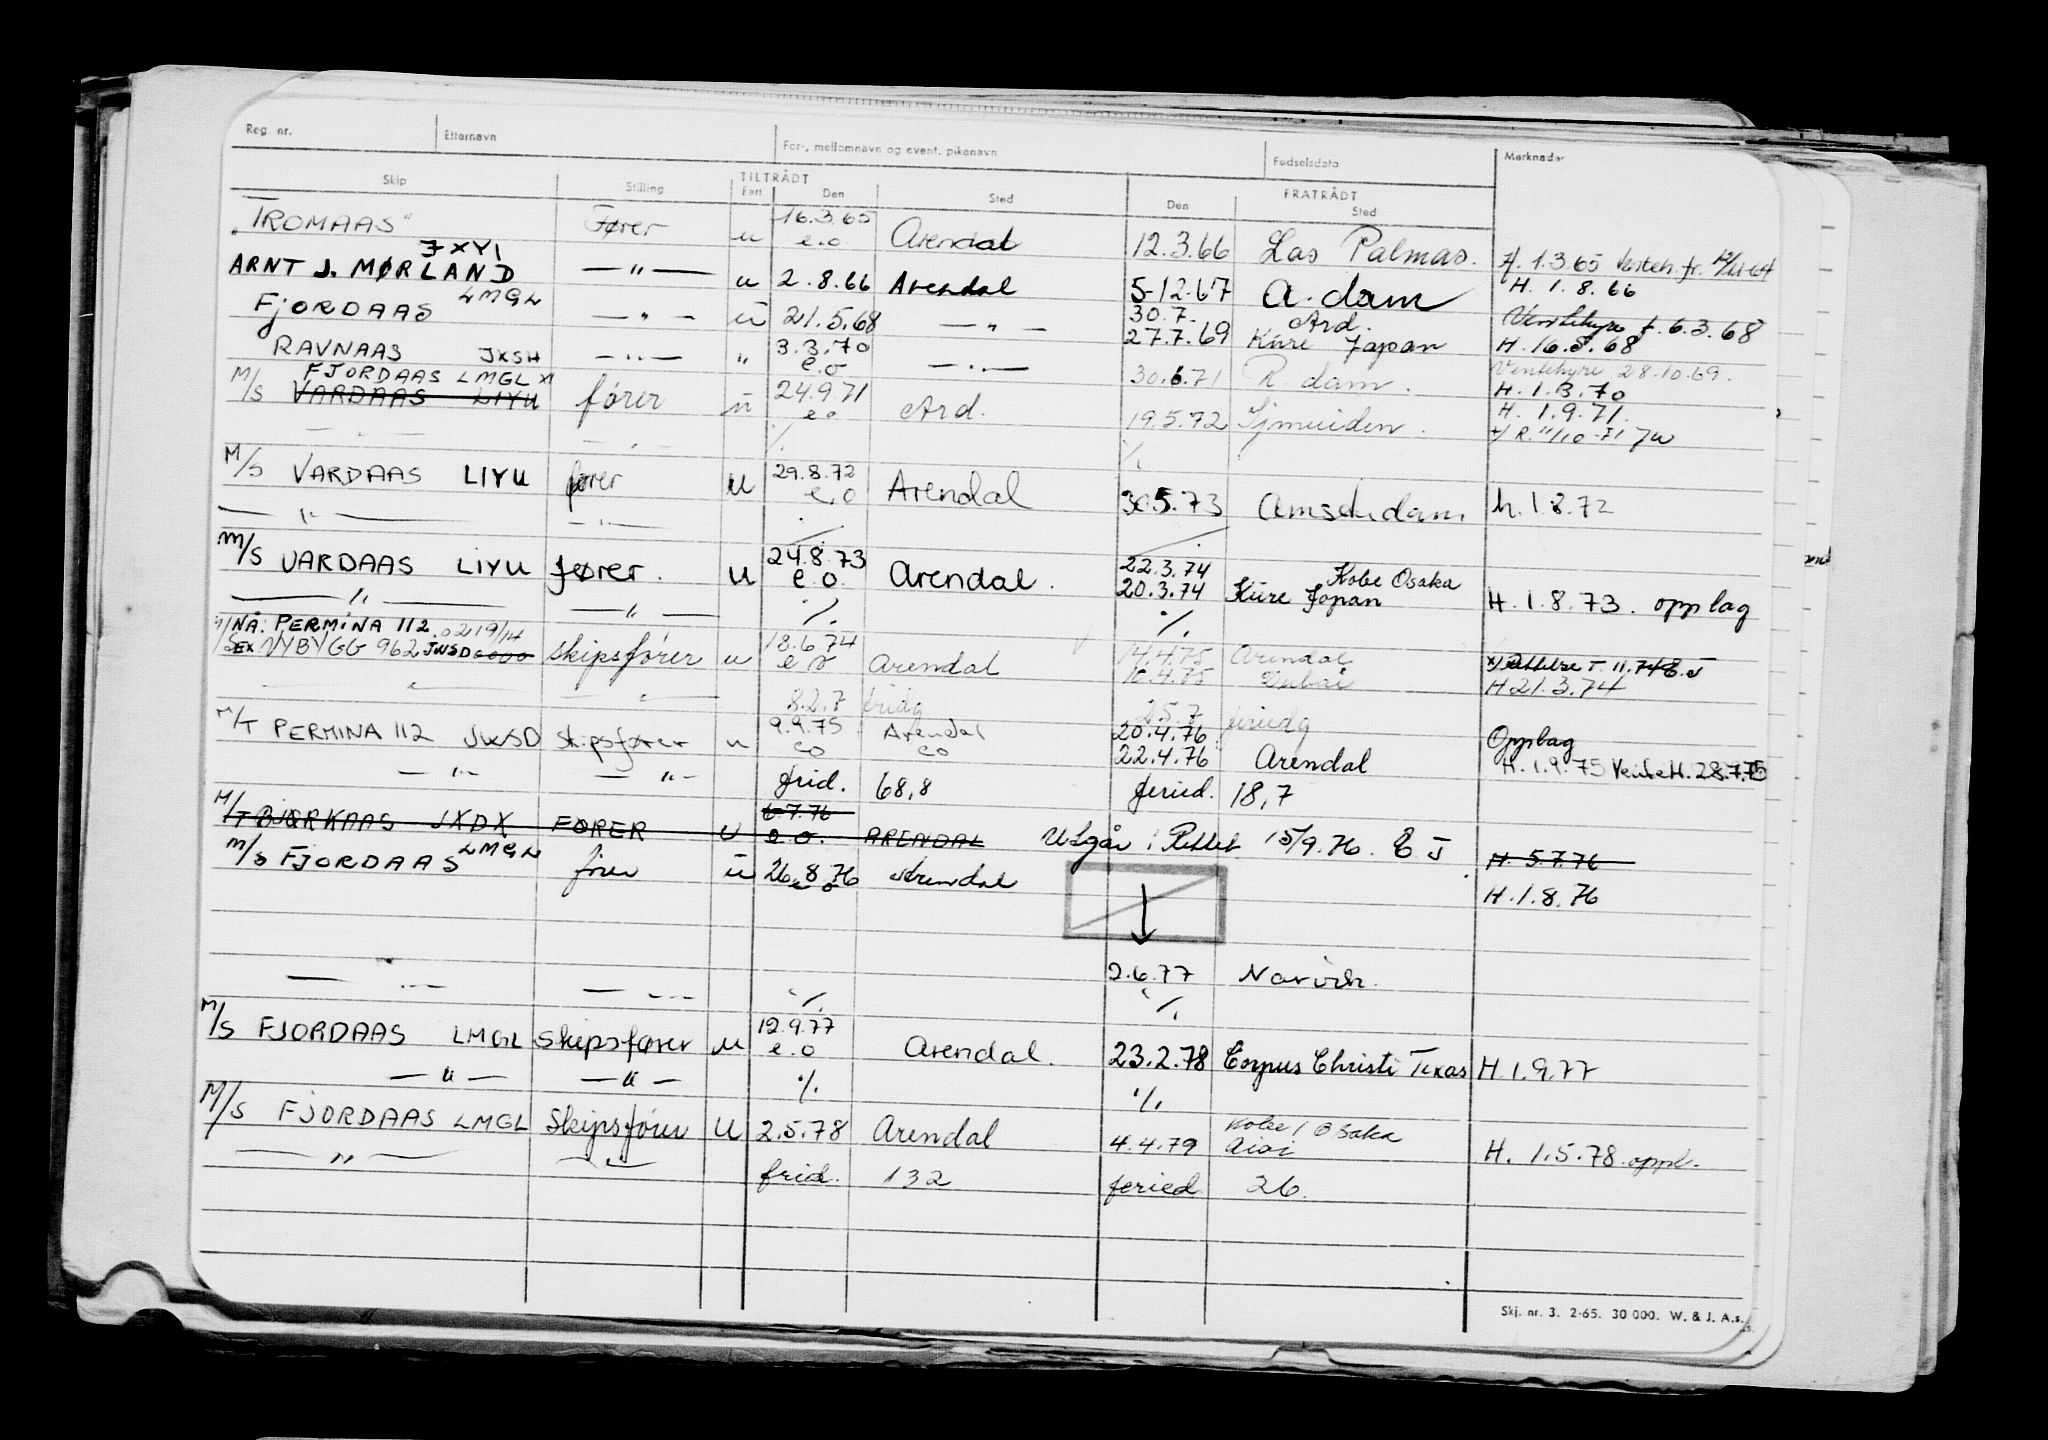 Reg. nr. Etternavn For-, mellomnavn og event. pikenavn Fødselsdato Merknader
TILTRÅDT FRATRÅDT
Skip Stilling Fart Den Sted Den Sted
"TROMAAS" Fører u 16.3.65 e.o Arendal 12.3.66 Las Palmas. H. 1.3.65
JXYI
ARNT J. MØRLAND — " — u 2.8.66 Arendal 5-12.67 A. dam H. 1.8.66
LMGL
FJORDAAS — " — u 21.5.68 — " — 30.7. 27.7.69 Ard. Kure Japan Ventehyre f. 6.3.68 H. 16.5.68
RAVNAAS JXSH — " — " 3.3.70 e.o — " — 30.6.71 R. dam. Ventehyre 28.10.69. H. 1.3.70
FJORDAAS LMGL x)
M/S VARDAAS LIYU fører u 24.9.71 e.o Ard. 19.5.72 Ijmuiden. H. 1.9.71.
— " — — " — ./. ./.
M/S VARDAAS LIYU fører u 29.8.72 e.o Arendal 30.5.73 Amsterdam h. 1.8.72
— " — — " — ./.
M/S VARDAAS LIYU fører. u 24.8.73 e.o. Arendal. 22.3.74 20.3.74 Kobe Osaka Kure Japan H. 1.8.73. opplag
— " — — " — ./. ./.
NÅ: PERMINA 112.
EX NYBYGG 962 JWSD skipsfører u 18.6.74 e o Arendal 14.4.75 Arendal 10.4.75 Dubai H 21.3.74
— " — — " — 8.2.7 fridg 25.7 feriedg
M/T PERMINA 112 JWSD skipsfører u 9.9.75 eo Arendal eo 20.4.76 22.4.76 Arendal Opplag H. 1.9.75 VenteH. 28.7.75
— " — — " — frid. 68,8 feried. 18,7
M/T BJØRKAAS JXDX FØRER U 6.7.76 e.o. ARENDAL Utgår: Rettet 15/9.76. E J H. 5.7.76
LMGL
M/S FJORDAAS fører u 26.8.76 e o Arendal H. 1.8.76
— " — — " — ./. 2.6.77 Narvik.
./.
M/S FJORDAAS LMGL Skipsfører u 12.9.77 e.o Arendal. 23.2.78 Corpus Christi Texas H. 1.9.77
— " — — " — ./. ./.
M/S FJORDAAS LMGL Skipsfører U 2.5.78 Arendal 4.4.79 Kobe / Osaka Aioi H. 1.5.78 oppl.
— " — — " — frid. 132 feried 26.
Skj. nr. 3. 2-65. 30 000. W. & J. A.s.